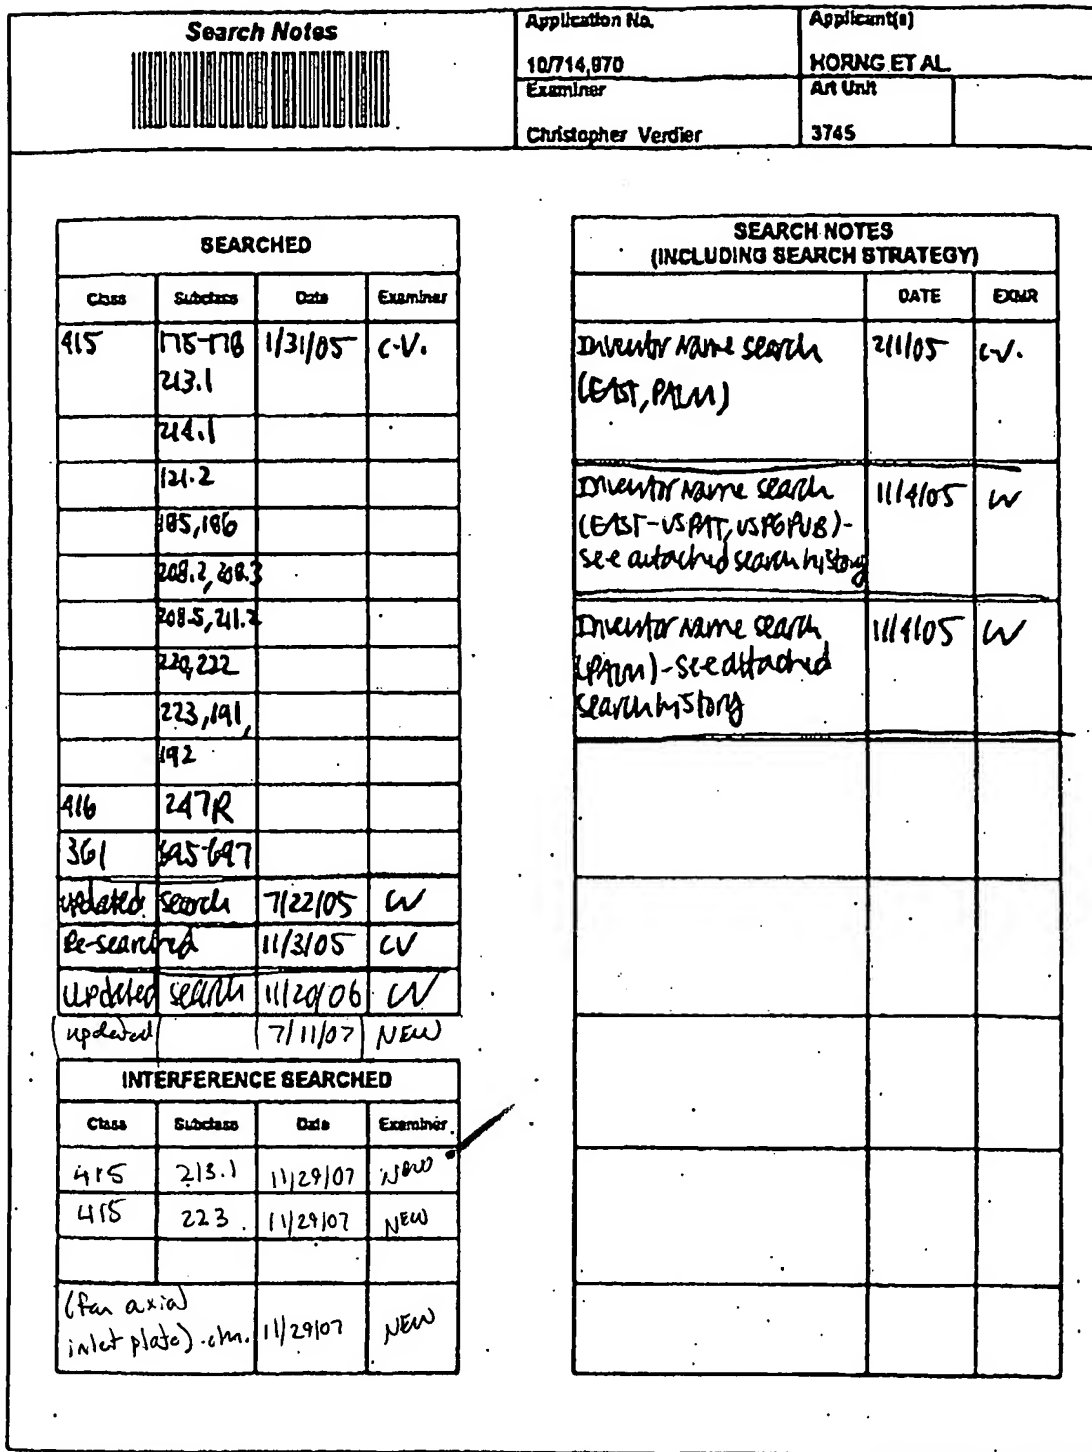 Search Notes
Application No.
Applicant(s)
10/714,970
HORNG ET AL.
Examiner
Art Unit
Christopher Verdier
3745
SEARCHED
Class Subclass Date Examiner
415 175-178 1/31/05 C.V.
213.1
214.1
121.2
185,186
208.2, 208.3
208.5, 211.2
220,222
223,191,
192
416 247R
361 695-697
updated search 7/22/05 CV
Re-searched 11/3/05 CV
updated search 11/20/06 CV
updated 7/11/07 NEW
INTERFERENCE SEARCHED
Class Subclass Date Examiner
415 213.1 11/29/07 NEW
415 223 11/29/07 NEW
(fan axial
inlet plate).clm. 11/29/07 NEW
SEARCH NOTES
(INCLUDING SEARCH STRATEGY)
DATE EXMR
Inventor Name search 2/1/05 C.V.
(EAST, PALM)
Inventor Name search 11/4/05 CV
(EAST-USPAT, USPGPUB)-
see attached search history
Inventor Name search 11/4/05 CV
(PALM)-see attached
search history